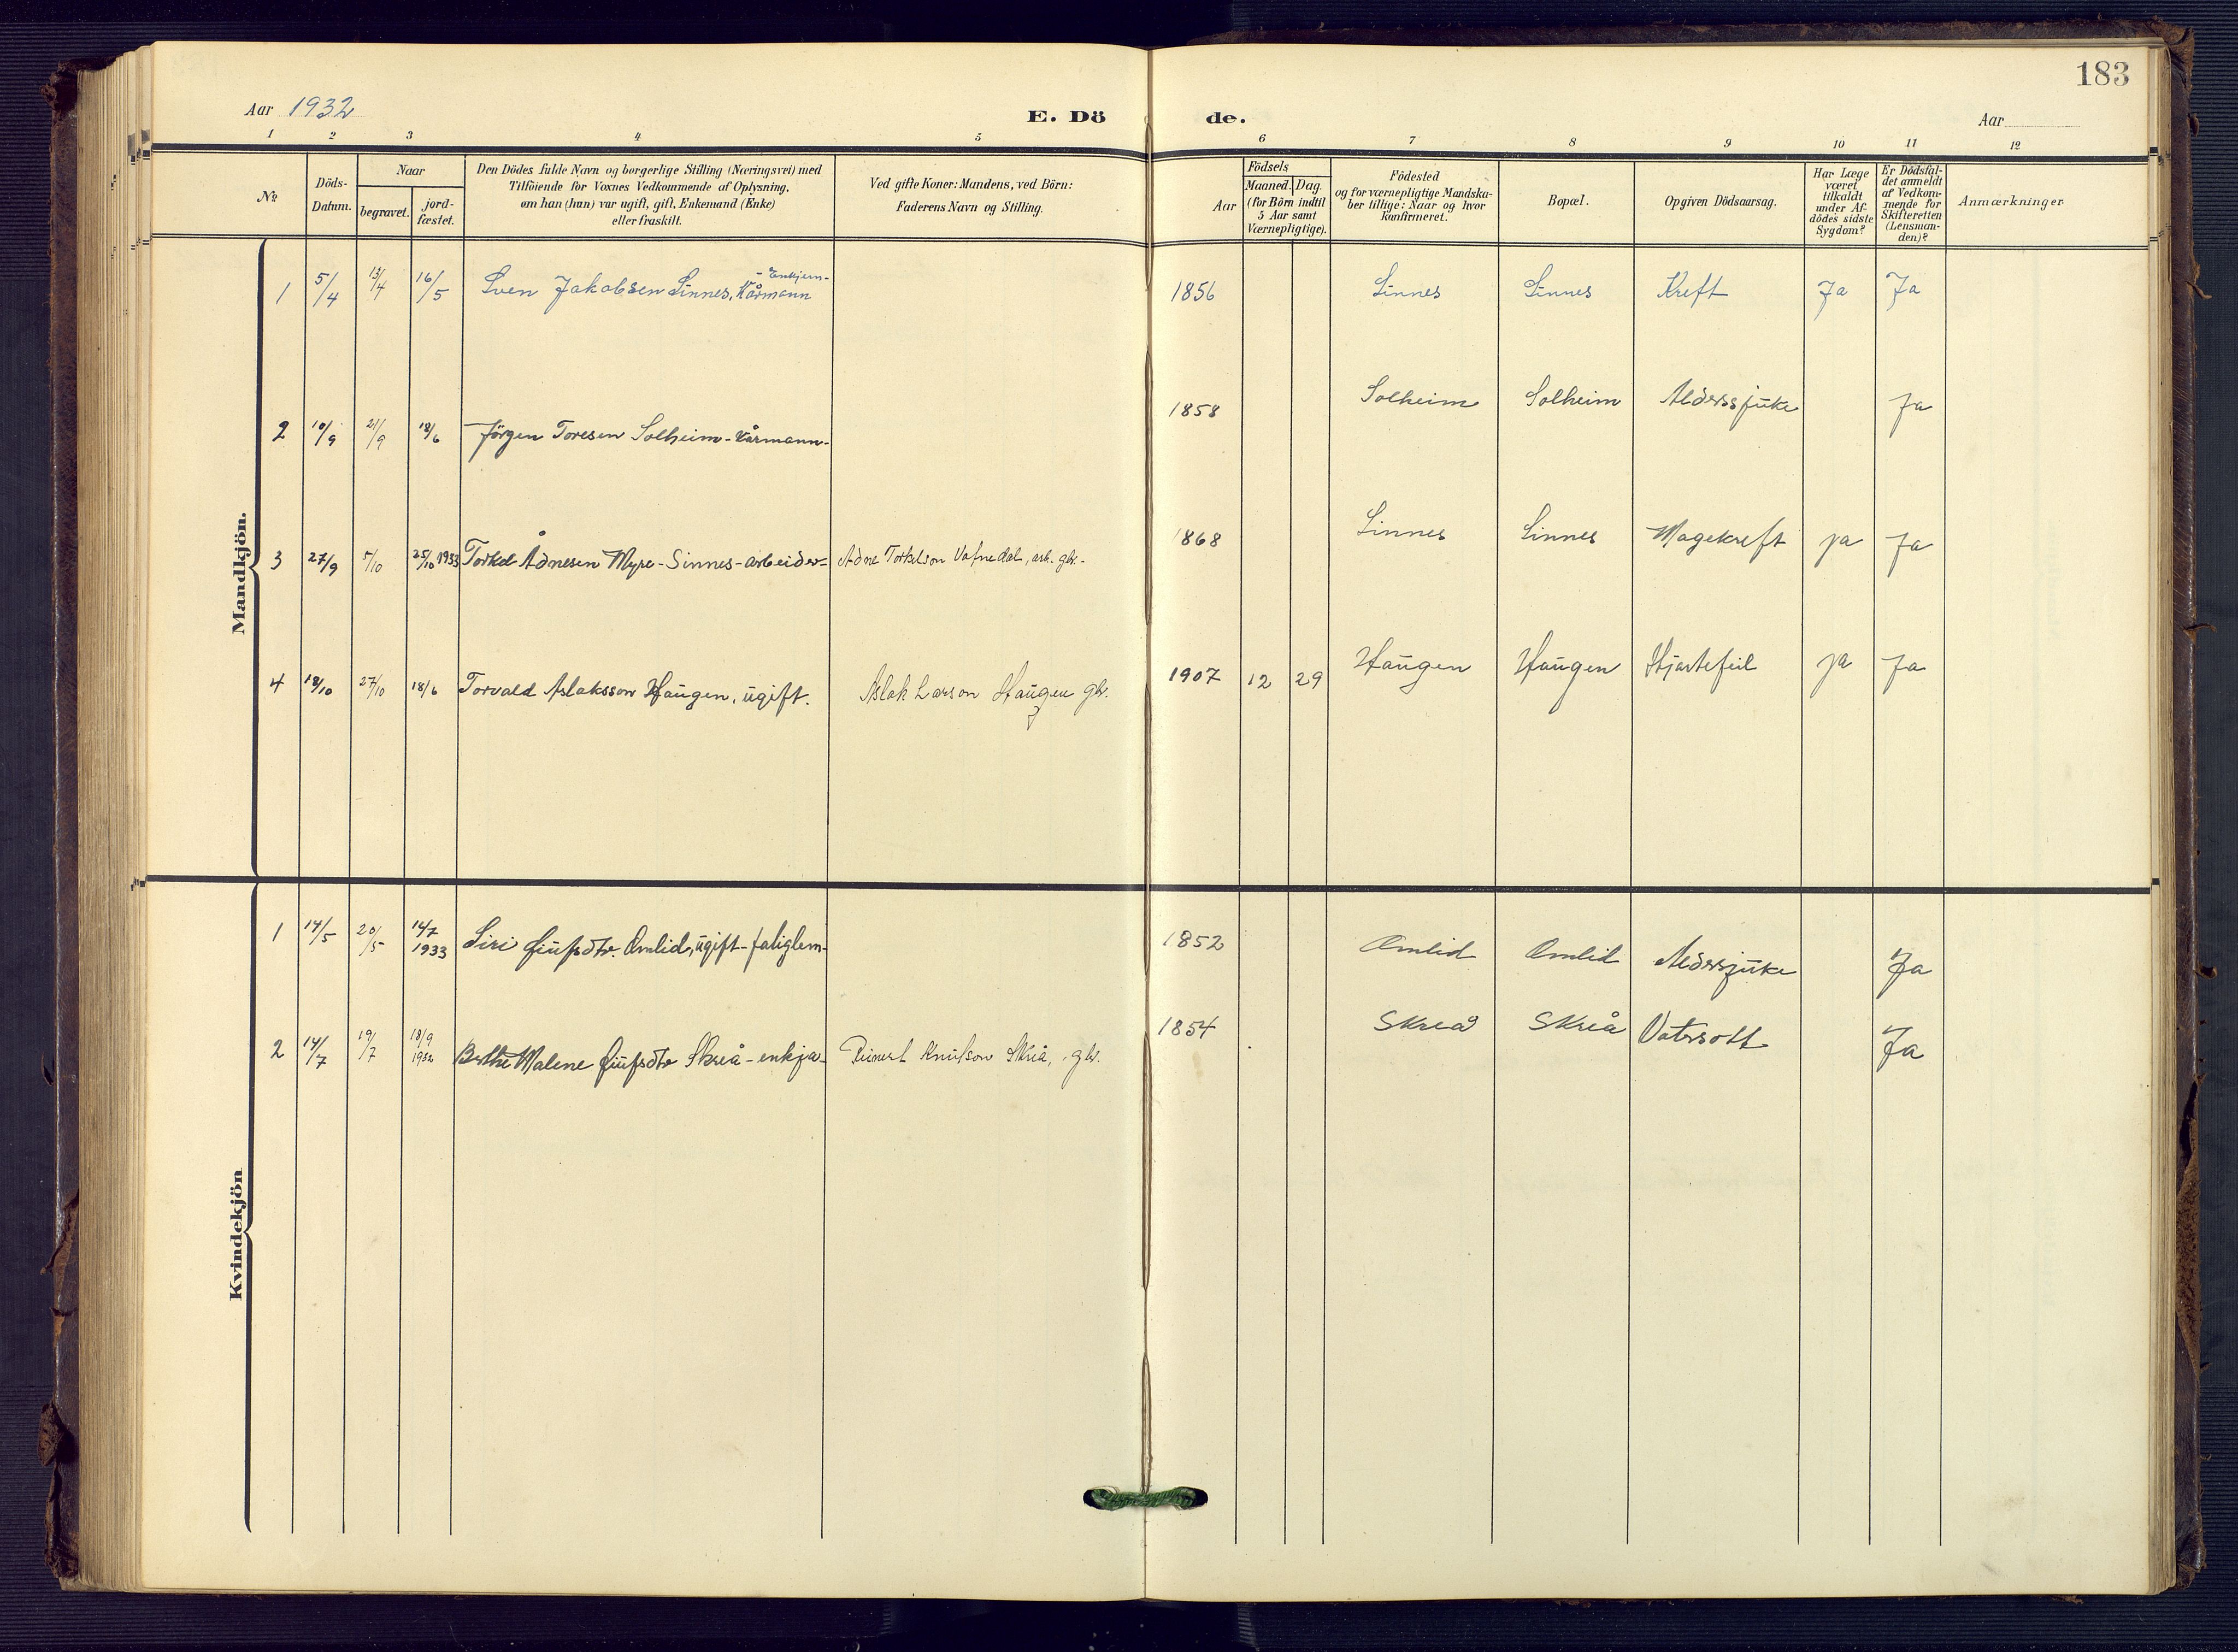 183
Aar 1932
E. Dö de.
Aar
1 2 3 4 5 6 7 8 9 10 11 12
No.
Döds-Datum.
Naar
begravet.
jord-fæstet.
Den Dödes fulde Navn og borgerlige Stilling (Næringsvei) med
Tilföiende for Voxnes Vedkommende af Oplysning,
om han (hun) var ugift, gift, Enkemand (Enke)
eller fraskilt.
Ved gifte Koner: Mandens, ved Börn:
Faderens Navn og Stilling.
Aar
Födsels
Maaned. Dag.
(for Börn indtil
5 Aar samt
Værnepligtige).
Födested
og for værnepligtige Mandska-
ber tillige: Naar og hvor
konfirmeret.
Bopæl.
Opgiven Dödsaarsag.
Har Læge
været
tilkaldt
under Af-
dödes sidste
Sygdom?
Er Dödsfal-
det anmeldt
af Vedkom-
mende for
Skifteretten
(Lensman-
den)?
Anmærkninger
Mandkjön.
- Enkjem-
1 5/4 13/4 16/5 Sven Jakobsen Sinnes, Kårmann 1856 Sinnes Sinnes Kreft Ja Ja
2 10/9 21/9 18/6 Jörgen Toresen Solheim - Kårmann - 1858 Solheim Solheim Alderssjuke Ja
3 27/9 5/10 25/10 1933 Torkel Ådnesen Myre - Sinnes - arbeider - Adne Torkelson Vafnedal, arb. gbr. - 1868 Sinnes Sinnes Magekreft ja Ja
4 18/10 27/10 18/6 Torvald Aslaksson Haugen, ugift. Aslak Larson Haugen gbr. 1907 12 29 Haugen Haugen Hjartefeil ja Ja
Kvindekjön
1 14/5 20/5 14/7 1933 Siri Omlid, ugift - 1852 Omlid Omlid Aldersjuke Ja
2 14/7 19/7 18/9 1932 Berthe Malene Skreå - enkja - Reinert Knutson Skreå, gbr. 1854 Skreå Skreå Vatersott Ja